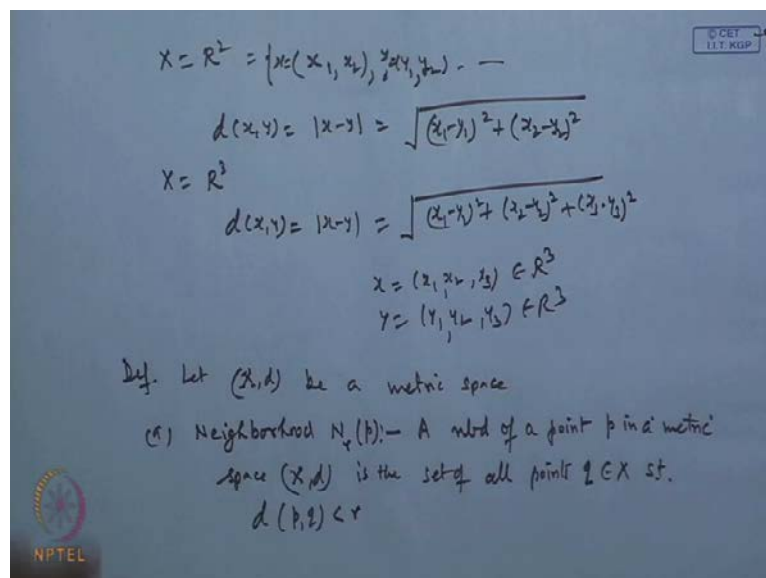 © CET
I.I.T. KGP
X = R² = {x=(x₁, x₂), y=(y₁, y₂) . —
d(x,y) = |x-y| = √(x₁-y₁)² + (x₂-y₂)²
X = R³
d(x,y) = |x-y| = √(x₁-y₁)² + (x₂-y₂)² + (x₃-y₃)²
x = (x₁, x₂, x₃) ∈ R³
y = (y₁, y₂, y₃) ∈ R³
Def. Let (X,d) be a metric space
(a) Neighborhood Nᵣ(p):- A nbd of a point p in a metric
space (X,d) is the set of all points q ∈ X st.
d(p,q) < r
NPTEL